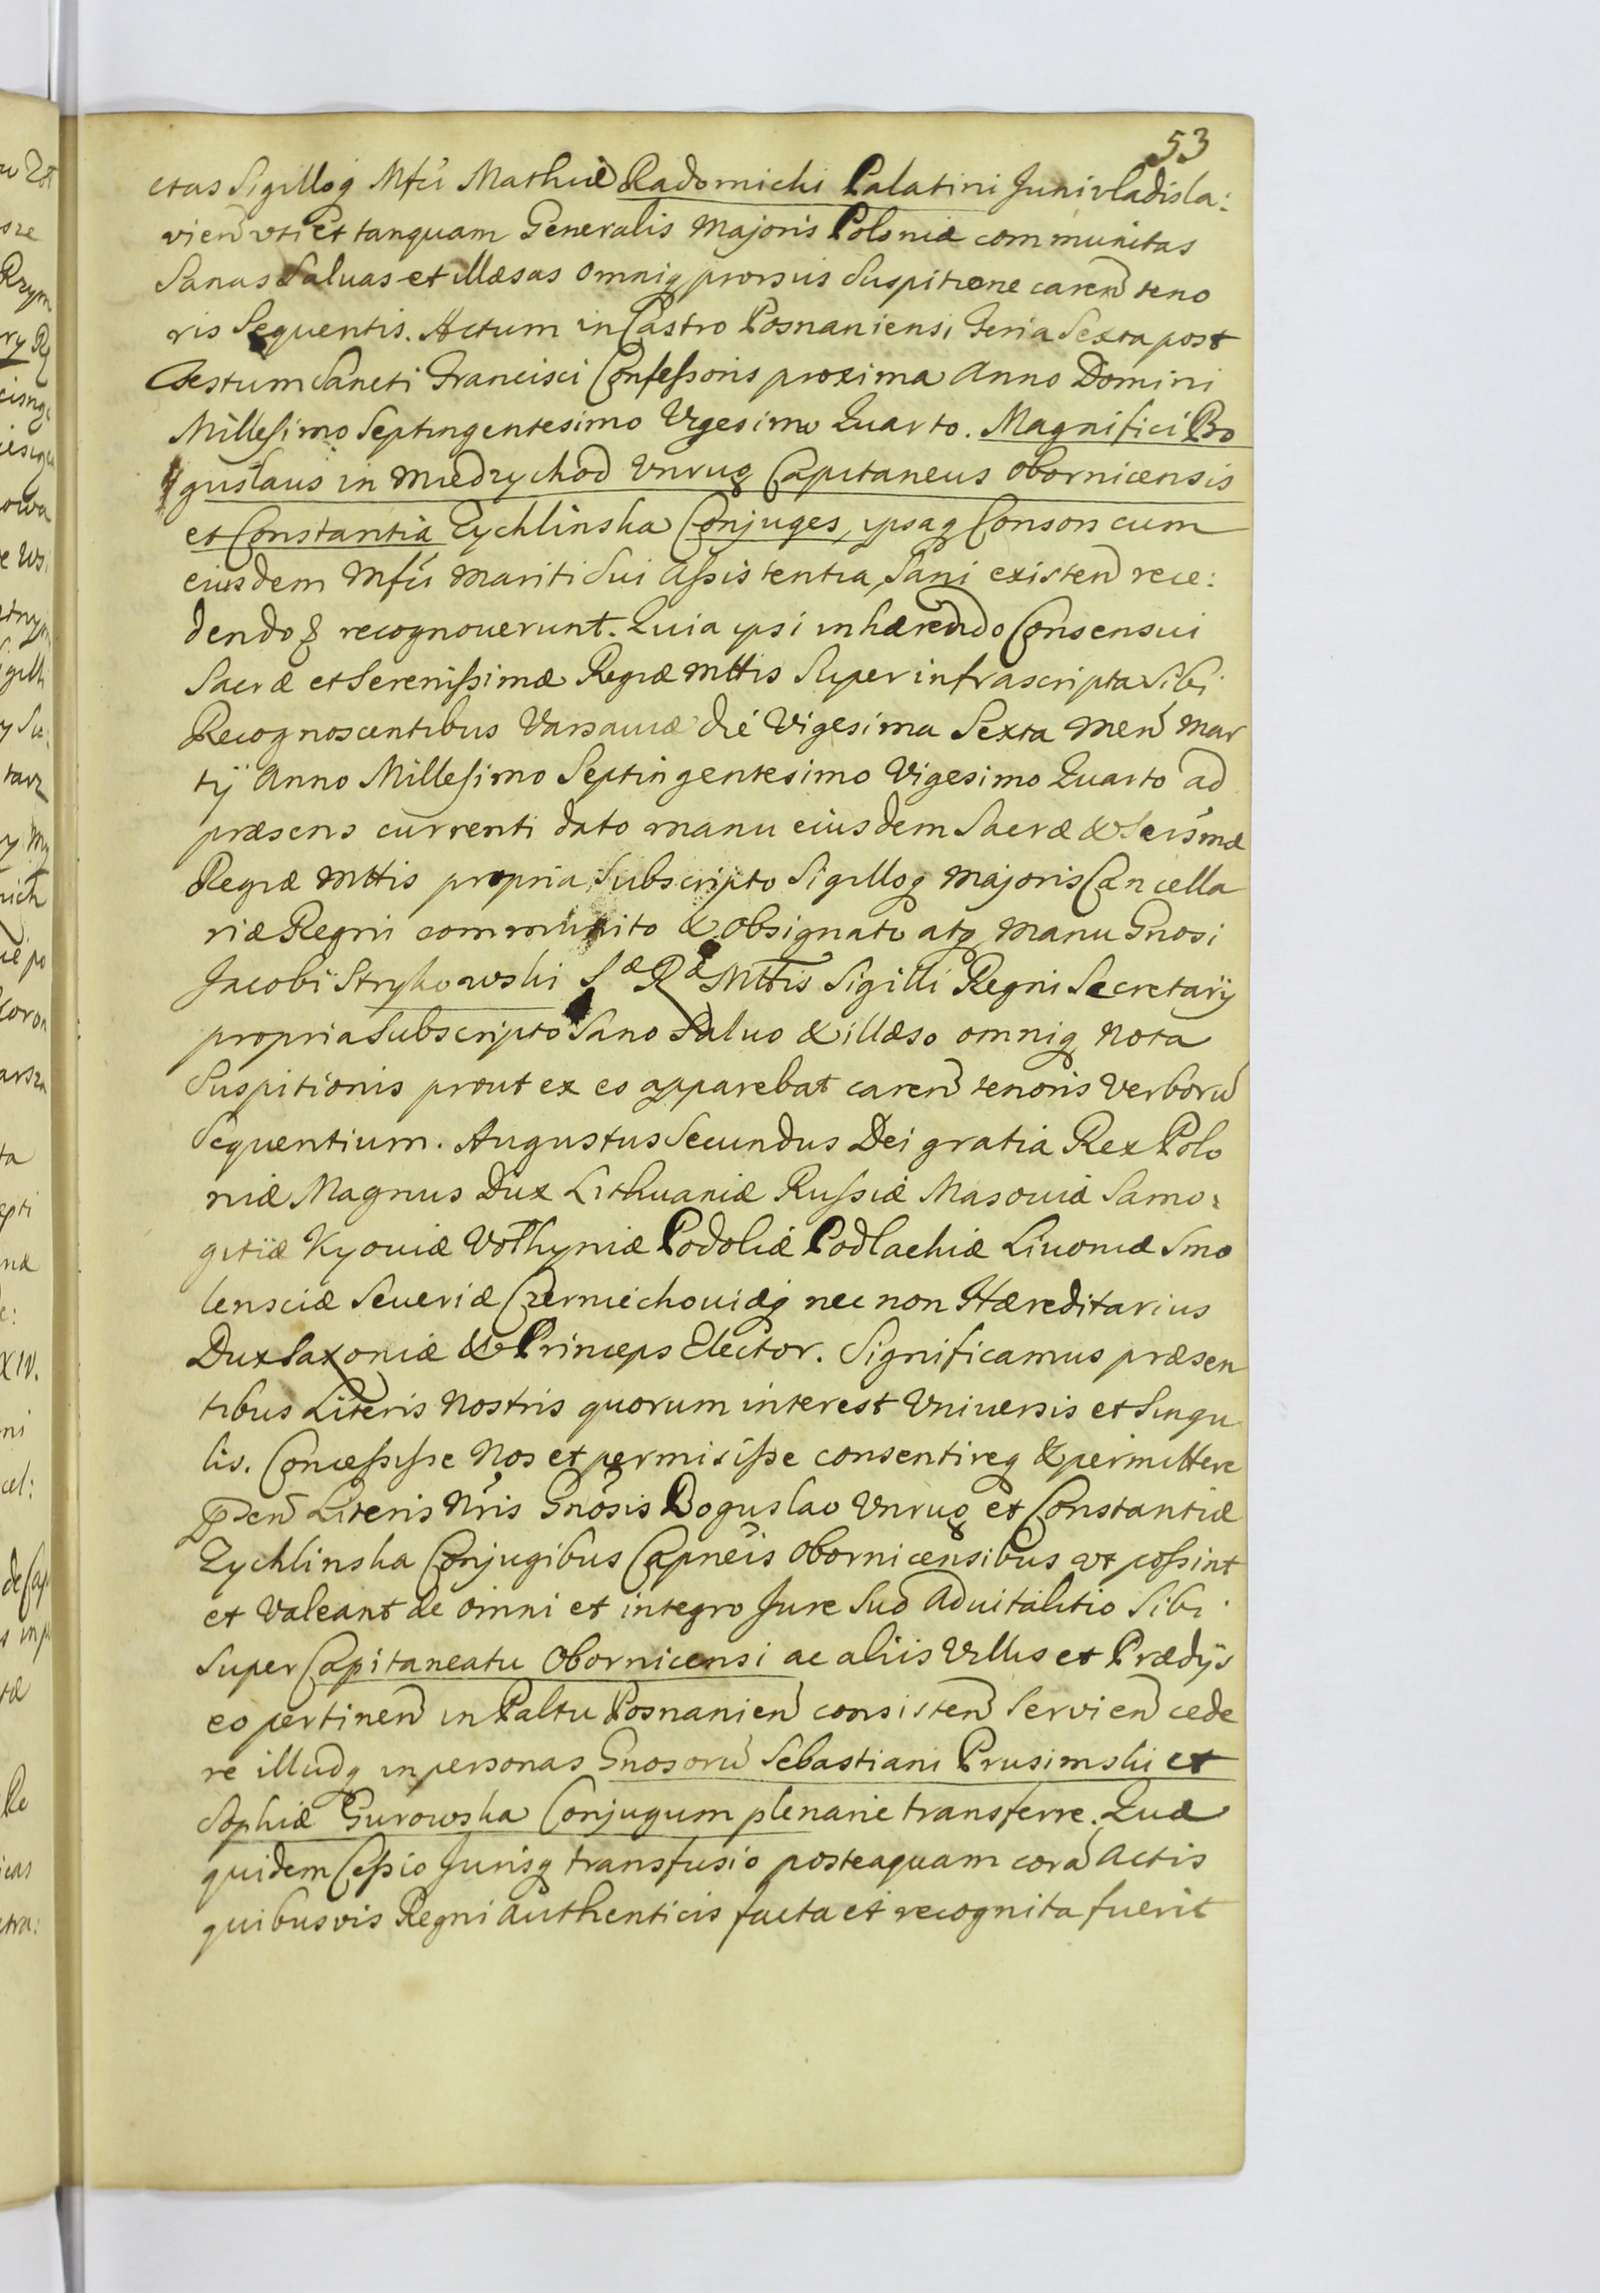 53
ctas Sigilloq Mfci Mathiæ Radomicki Palatini Junivladisla:
vien̄ vti et tanquam Generalis Majoris Poloniæ communitas
Sanas Saluas et illæsas omniq prorsus Suspitione caren̄ teno
ris Sequentis. Actum in Castro Posnaniensi Feria Sexta post
Festum Sancti Francisci Confessoris proxima Anno Domini
Millesimo Septingentesimo Vigesimo Quarto. Magnifici Bo
guslaus in Miedzychod Vnrug Capitaneus Obornicensis
et Constantia Zychlinska Conjuges, ipsaq Consors cum
eiusdem Mfci Mariti Sui Assistentia, Sani existen̄ rece:
dendo & recognouerunt. Quia ipsi inhærendo Consensui
Sacræ et Serenissimæ Regiæ Mttis Super infrascripta Sibi
Recognoscentibus Varsauiæ die Vigesima Sexta Men̄ Mar
tij Anno Millesimo Septingentesimo Vigesimo Quarto ad
præsens currenti dato manu eiusdem Sacræ & Sersmæ
Regiæ Mttis propria Subscripto Sigilloq Majoris Cancella
riæ Regni communito & Obsignato atq Manu Gnosi
Jacobi Strykowski Sæ Ræ Mttis Sigilli Regni Secretarij
propria Subscripto Sano Saluo & illæso omniq Nota
Suspitionis prout ex eo apparebat caren̄ tenoris Verborū
Sequentium. Augustus Secundus Dei gratia Rex Polo
niæ Magnus Dux Lithuaniæ Russiæ Masouiæ Samo:
gitiæ Kyouiæ Volhyniæ Podoliæ Podlachiæ Liuoniæ Smo
lensciæ Seueriæ Czerniechouiæq nec non Hæreditarius
Dux Saxoniæ & Princeps Elector. Significamus præsen
tibus Literis Nostris quorum interest Vniuersis et Singu
lis. Concessisse Nos et permisisse consentireq & permittere
Pṕen̄ Literis Nris Gnosis Boguslao Vnrug et Constantiæ
Zychlinska Conjugibus Capneis Obornicensibus vt possint
et Valeant de omni et integro Jure Suo Aduitalitio Sibi
Super Capitaneatu Obornicensi ac aliis Villis et Prædijs
eo pertinen̄ in Paltu Posnanien̄ consisten̄ Servien̄ cede
re illudq in personas Gnosorū Sebastiani Prusimski et
Sophiæ Gurowska Conjugum plenarie transferre. Quæ
quidem Cessio Jurisq transfusio posteaquam corā Actis
quibusvis Regni authenticis facta et recognita fuerit